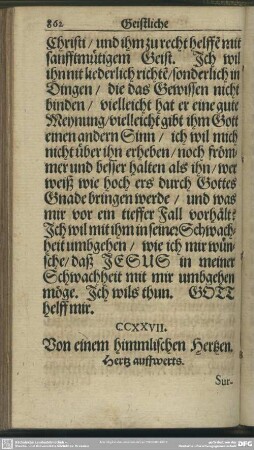 862 Geistliche
Christi / und ihm zu recht helffē mit
sanfftmütigem Geist. Ich wil
ihn nit liederlich richtē / sonderlich in
Dingen / die das Gewissen nicht
binden / vielleicht hat er eine gute
Meynung / vielleicht gibt ihm Gott
einen andern Sinn / ich wil mich
nicht über ihn erheben / noch fröm-
mer und besser halten als ihn / wer
weiß wie hoch ers durch Gottes
Gnade bringen werde / und was
mir vor ein tieffer Fall vorhält?
Ich wil mit ihm in seiner Schwach-
heit umbgehen / wie ich mir wün-
sche / daß JESUS in meiner
Schwachheit mit mir umbgehen
möge. Ich wils thun. GOTT
helff mir.
CCXXVII.
Von einem himmlischen Hertzen.
Hertz auffwerts.
Sur-